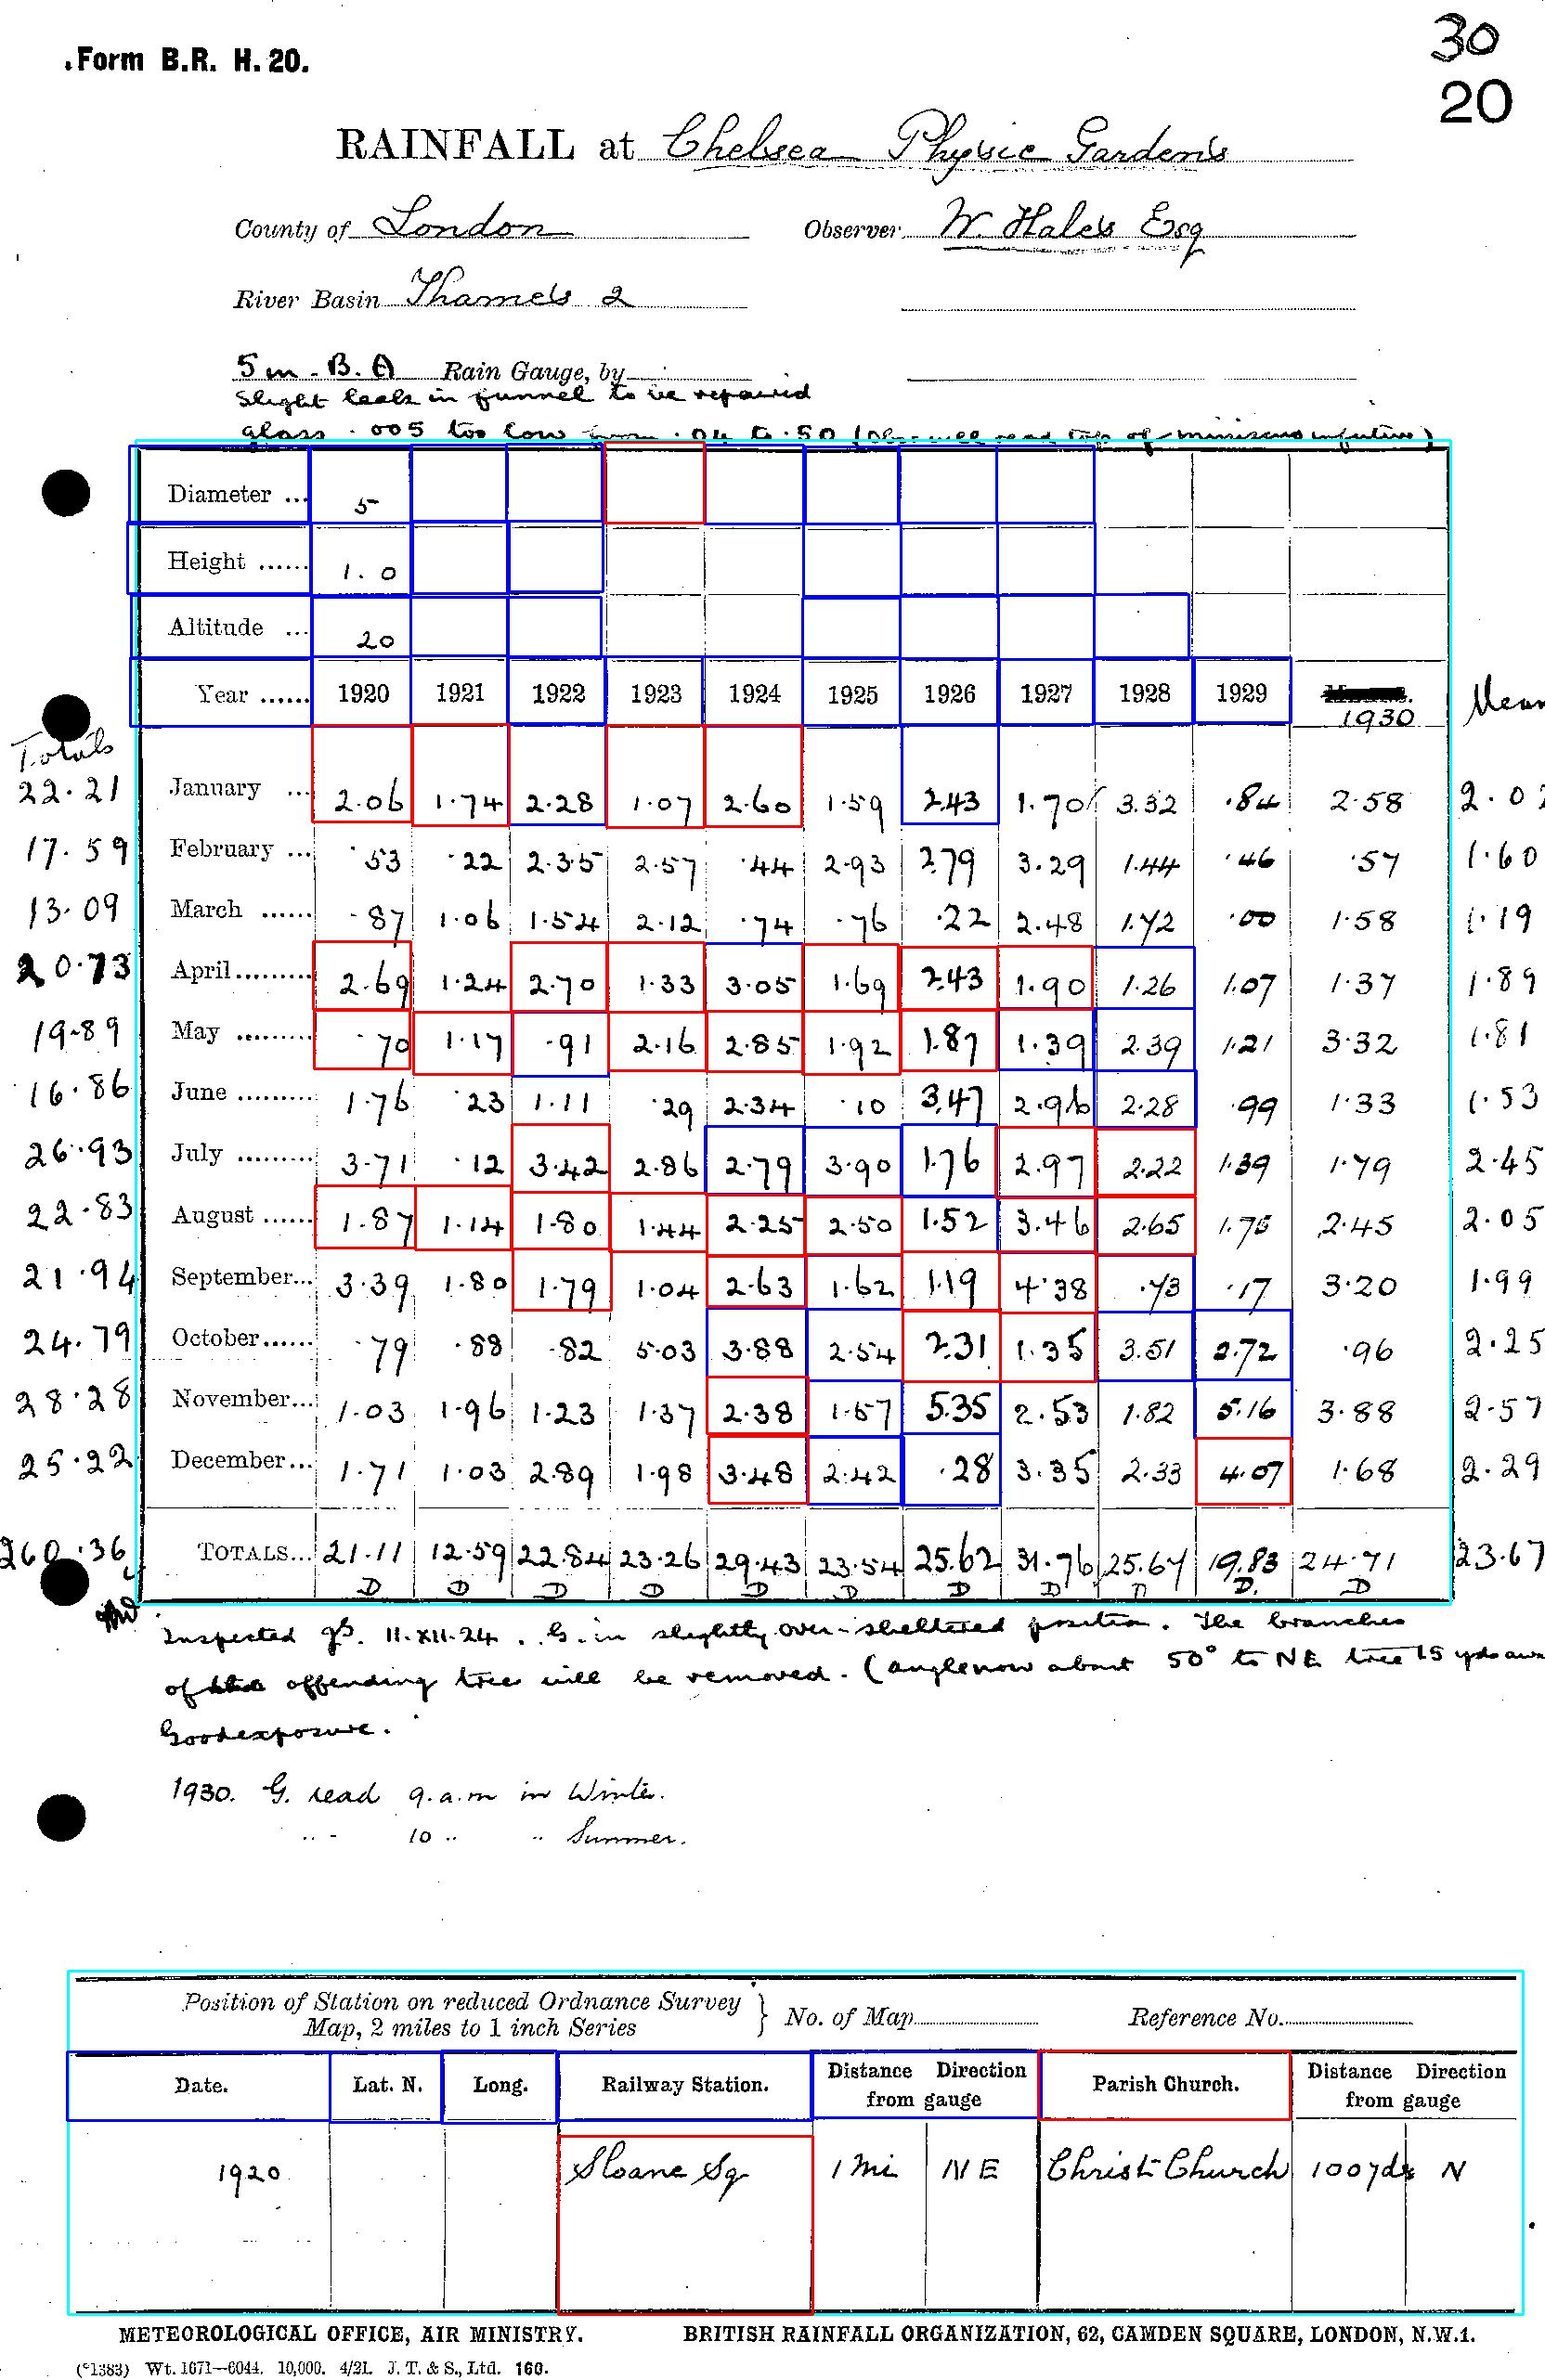 30
Form B.R. H. 20.
20
RAINFALL at Chelsea Physic Gardens
County of London Observer W. Hales Esq
River Basin Thames 2
5 in. B. A Rain Gauge, by
Slight leak in funnel to be repaired
glass .005 too low from .04 to .50 (Obs will read top of miniscus in future)
Diameter ... 5
Height ...... 1.0
Altitude ... 20
Year ...... 1920 1921 1922 1923 1924 1925 1926 1927 1928 1929 1930 Mean
Totals
22.21 January ... 2.06 1.74 2.28 1.07 2.60 1.59 2.43 1.70 3.32 .84 2.58 2.02
17.59 February ... .53 .22 2.35 2.57 .44 2.93 2.79 3.29 1.44 .46 .57 1.60
13.09 March ...... .87 1.06 1.54 2.12 .74 .76 .22 2.48 1.72 .00 1.58 1.19
20.73 April ......... 2.69 1.24 2.70 1.33 3.05 1.69 2.43 1.90 1.26 1.07 1.37 1.89
19.89 May ......... .70 1.17 .91 2.16 2.85 1.92 1.87 1.39 2.39 1.21 3.32 1.81
16.86 June ......... 1.76 .23 1.11 .29 2.34 .10 3.47 2.96 2.28 .99 1.33 1.53
26.93 July ......... 3.71 .12 3.42 2.86 2.79 3.90 1.76 2.97 2.22 1.39 1.79 2.45
22.83 August ...... 1.87 1.14 1.80 1.44 2.25 2.50 1.52 3.46 2.65 1.75 2.45 2.05
21.94 September... 3.39 1.80 1.79 1.04 2.63 1.62 1.19 4.38 .73 .17 3.20 1.99
24.79 October...... .79 .88 .82 5.03 3.88 2.54 2.31 1.35 3.51 2.72 .96 2.25
28.28 November... 1.03 1.96 1.23 1.37 2.38 1.57 5.35 2.53 1.82 5.16 3.88 2.57
25.22 December... 1.71 1.03 2.89 1.98 3.48 2.42 .28 3.35 2.33 4.07 1.68 2.29
260.36 TOTALS... 21.11 12.59 22.84 23.26 29.43 23.54 25.62 31.76 25.67 19.83 24.71 23.67
D D D D D D D D D D. D
Inspected 11.XII.24. G. in slightly over-sheltered position. The branches
of the offending tree will be removed. (angle now about 50° to NE tree 15 yds
Good exposure.
1930. G. read 9.a.m in Winter.
.. - 10 .. .. Summer.
Position of Station on reduced Ordnance Survey
Map, 2 miles to 1 inch Series } No. of Map Reference No.
Date. Lat. N. Long. Railway Station. Distance Direction from gauge Parish Church. Distance Direction from gauge
1920 Sloane Sq 1 mi NE Christ Church 100 yds N
METEOROLOGICAL OFFICE, AIR MINISTRY. BRITISH RAINFALL ORGANIZATION, 62, CAMDEN SQUARE, LONDON, N.W.1.
(*1383) Wt. 1671—6044. 10,000. 4/21. J. T. & S., Ltd. 160.